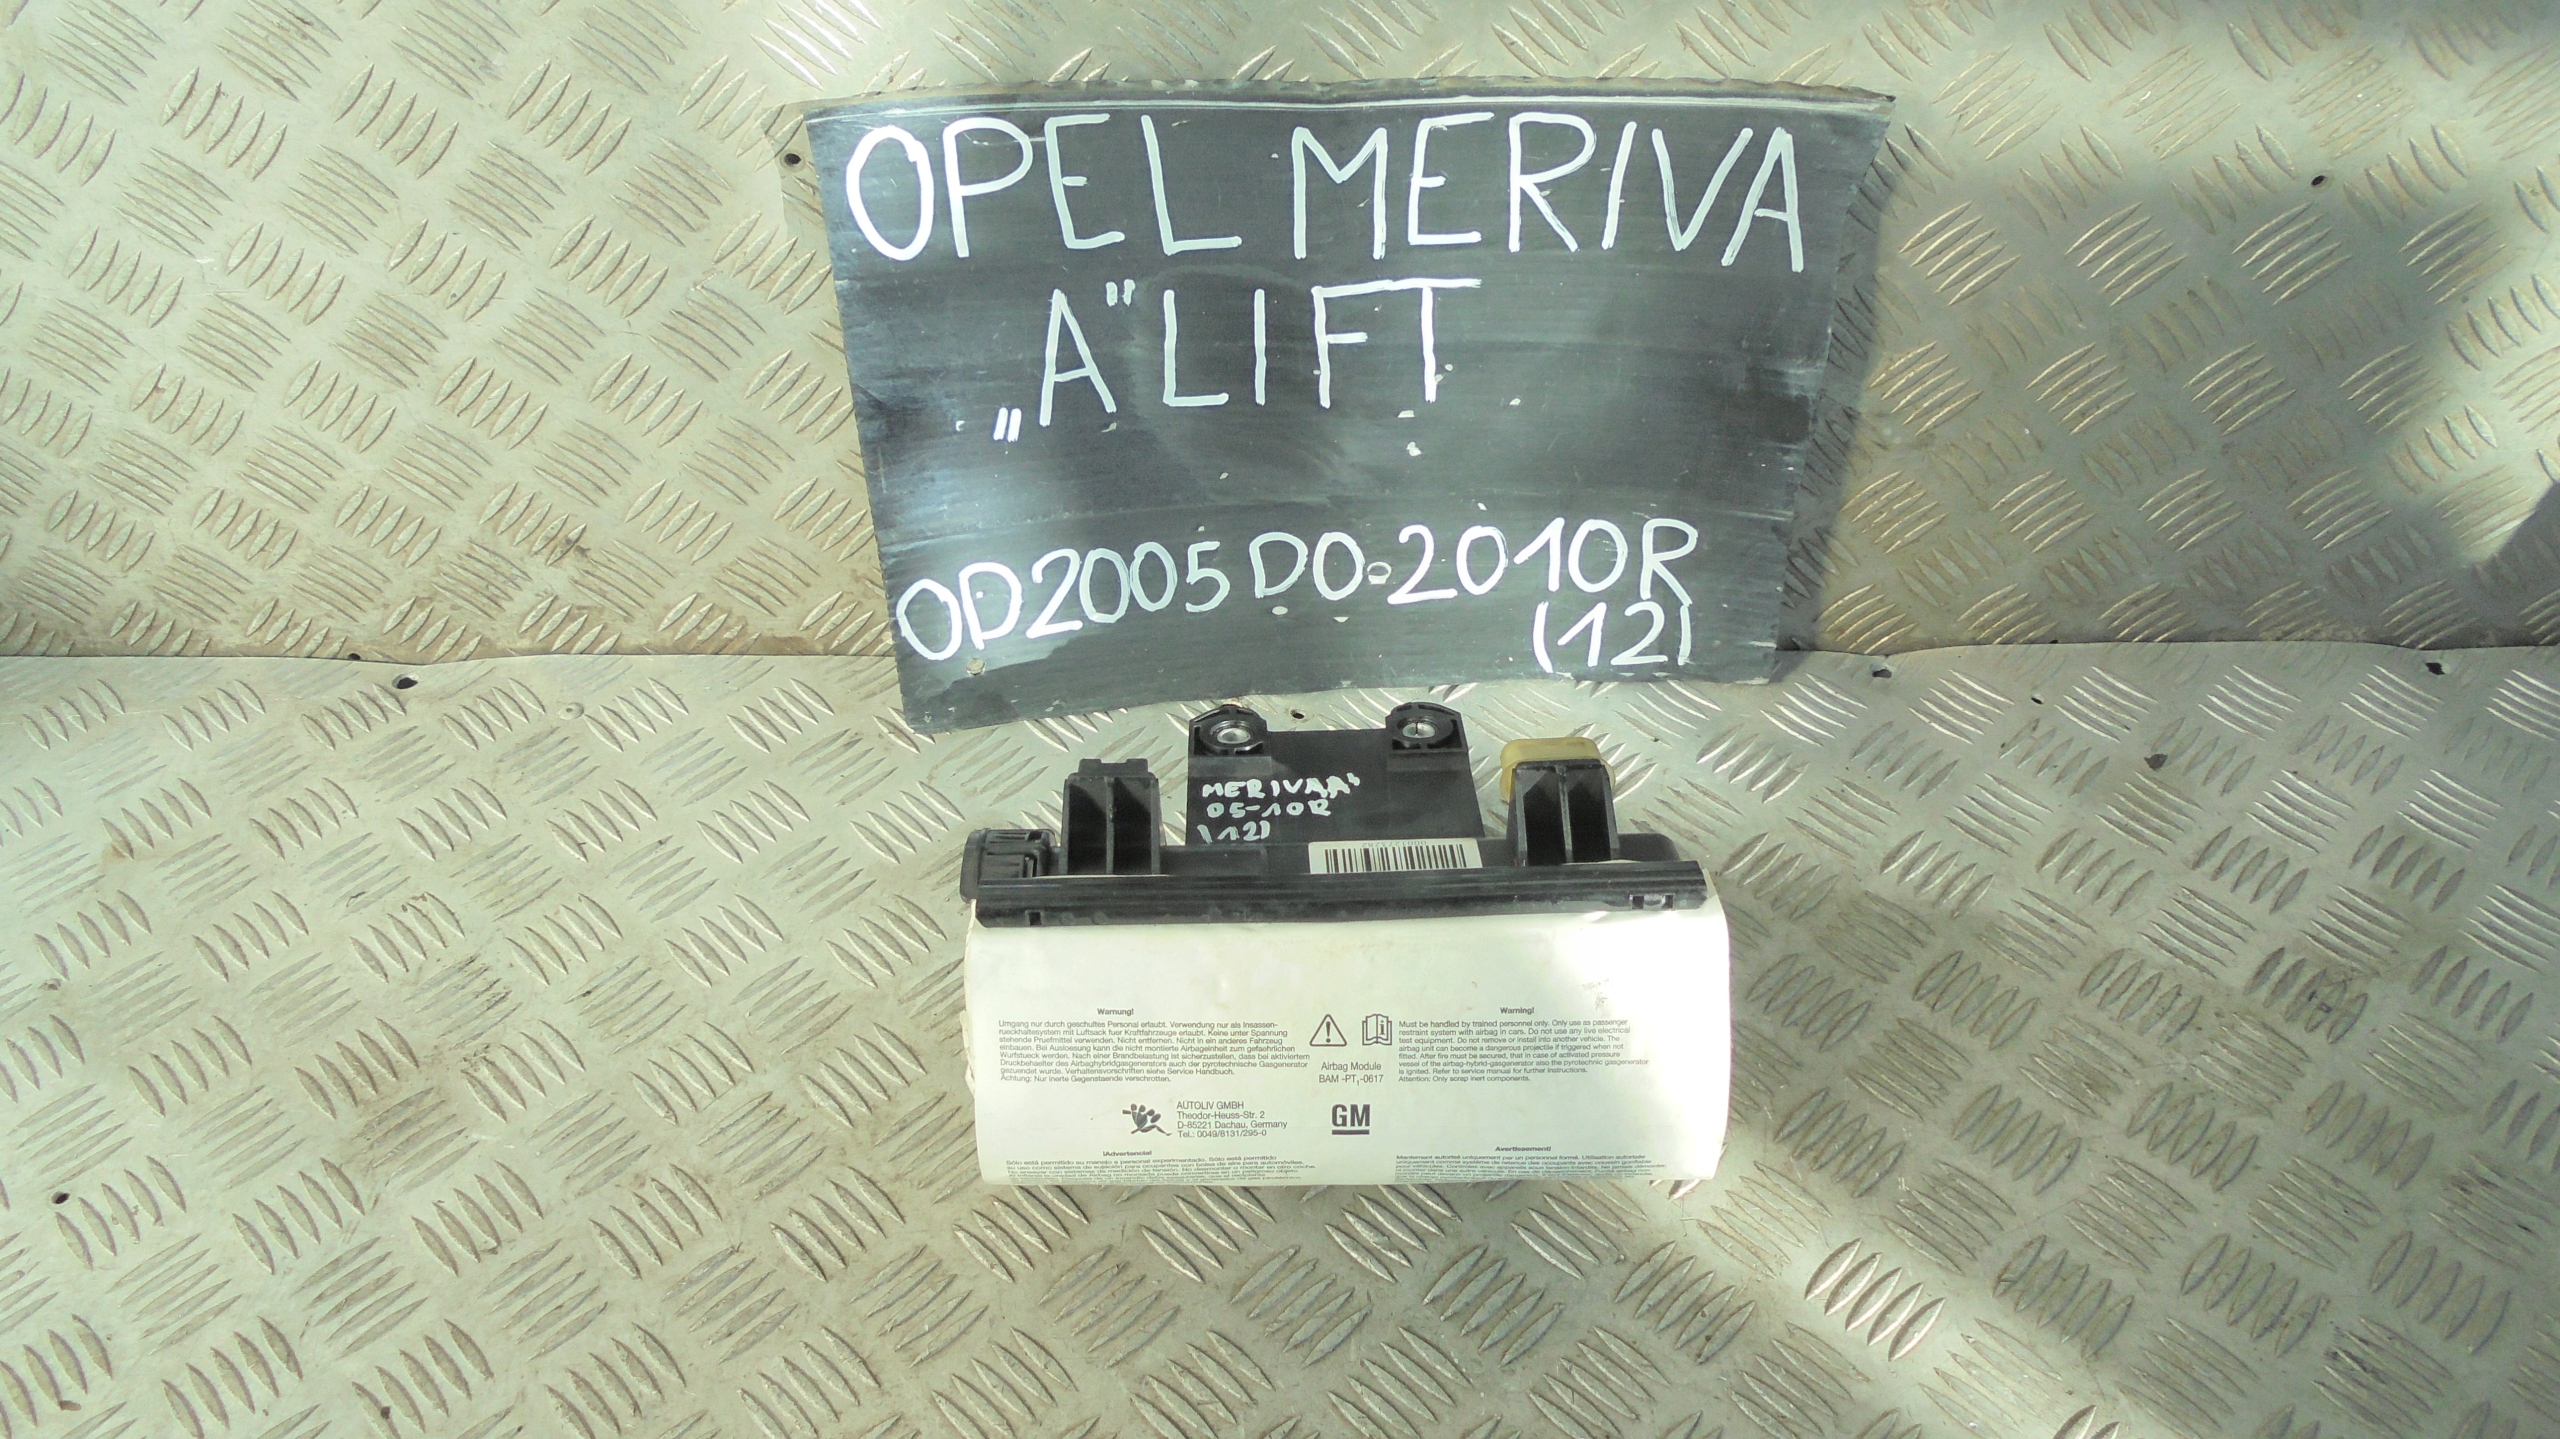 OPEL MERIVA
„A" LIFT
OD 2005 DO 2010R
(12)
MERIVA „A"
05-10R
(12)
Warnung!
Umgang nur durch geschultes Personal erlaubt. Verwendung nur als Insassen-
rueckhaltesystem mit Luftsack fuer Kraftfahrzeuge erlaubt. Keine unter Spannung
stehende Pruefmittel verwenden. Nicht entfernen. Nicht in ein anderes Fahrzeug
einbauen. Bei Ausloesung kann die nicht montierte Airbageinheit zum gefaehrlichen
Wurfstueck werden. Nach einer Brandbelastung ist sicherzustellen, dass bei aktiviertem
Druckbehaelter des Airbaghybridgasgenerators auch der pyrotechnische Gasgenerator
gezuendet wurde. Verhaltensvorschriften siehe Service Handbuch.
Achtung: Nur inerte Gegenstaende verschrotten.
Airbag Module
BAM -PT1-0617
Warning!
Must be handled by trained personnel only. Only use as passenger
restraint system with airbag in cars. Do not use any live electrical
test equipment. Do not remove or install into another vehicle. The
airbag unit can become a dangerous projectile if triggered when not
fitted. After fire must be secured, that in case of activated pressure
vessel of the airbag-hybrid-gasgenerator also the pyrotechnic gasgenerator
is ignited. Refer to service manual for further instructions.
Attention: Only scrap inert components.
AUTOLIV GMBH
Theodor-Heuss-Str. 2
D-85221 Dachau, Germany
Tel.: 0049/8131/295-0
GM
¡Advertencia!
Sólo está permitido su manejo a personal experimentado. Sólo está permitido
su uso como sistema de sujeción para ocupantes con bolsa de aire para automóviles.
Avertissement!
Maniement autorisé uniquement par un personnel formé. Utilisation autorisée
uniquement comme système de retenue des occupants avec coussin gonflable